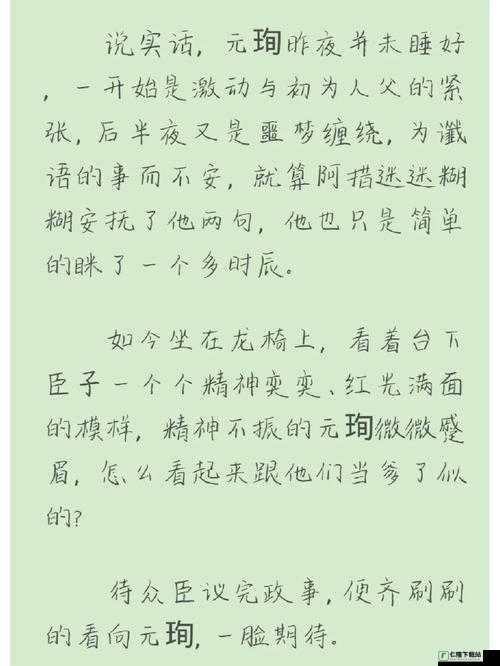 说实话，元珣昨夜并未睡好
，一开始是激动与初为人父的紧
张，后半夜又是噩梦缠绕，为谶
语的事而不安，就算阿措迷迷糊
糊安抚了他两句，他也只是简单
的眯了一个多时辰。
如今坐在龙椅上，看着台下
臣子一个个精神奕奕、红光满面
的模样，精神不振的元珣微微蹙
眉，怎么看起来跟他们当爹了似
的?
待众臣议完政事，便齐刷刷
的看向元珣，一脸期待。
仁隆下载站